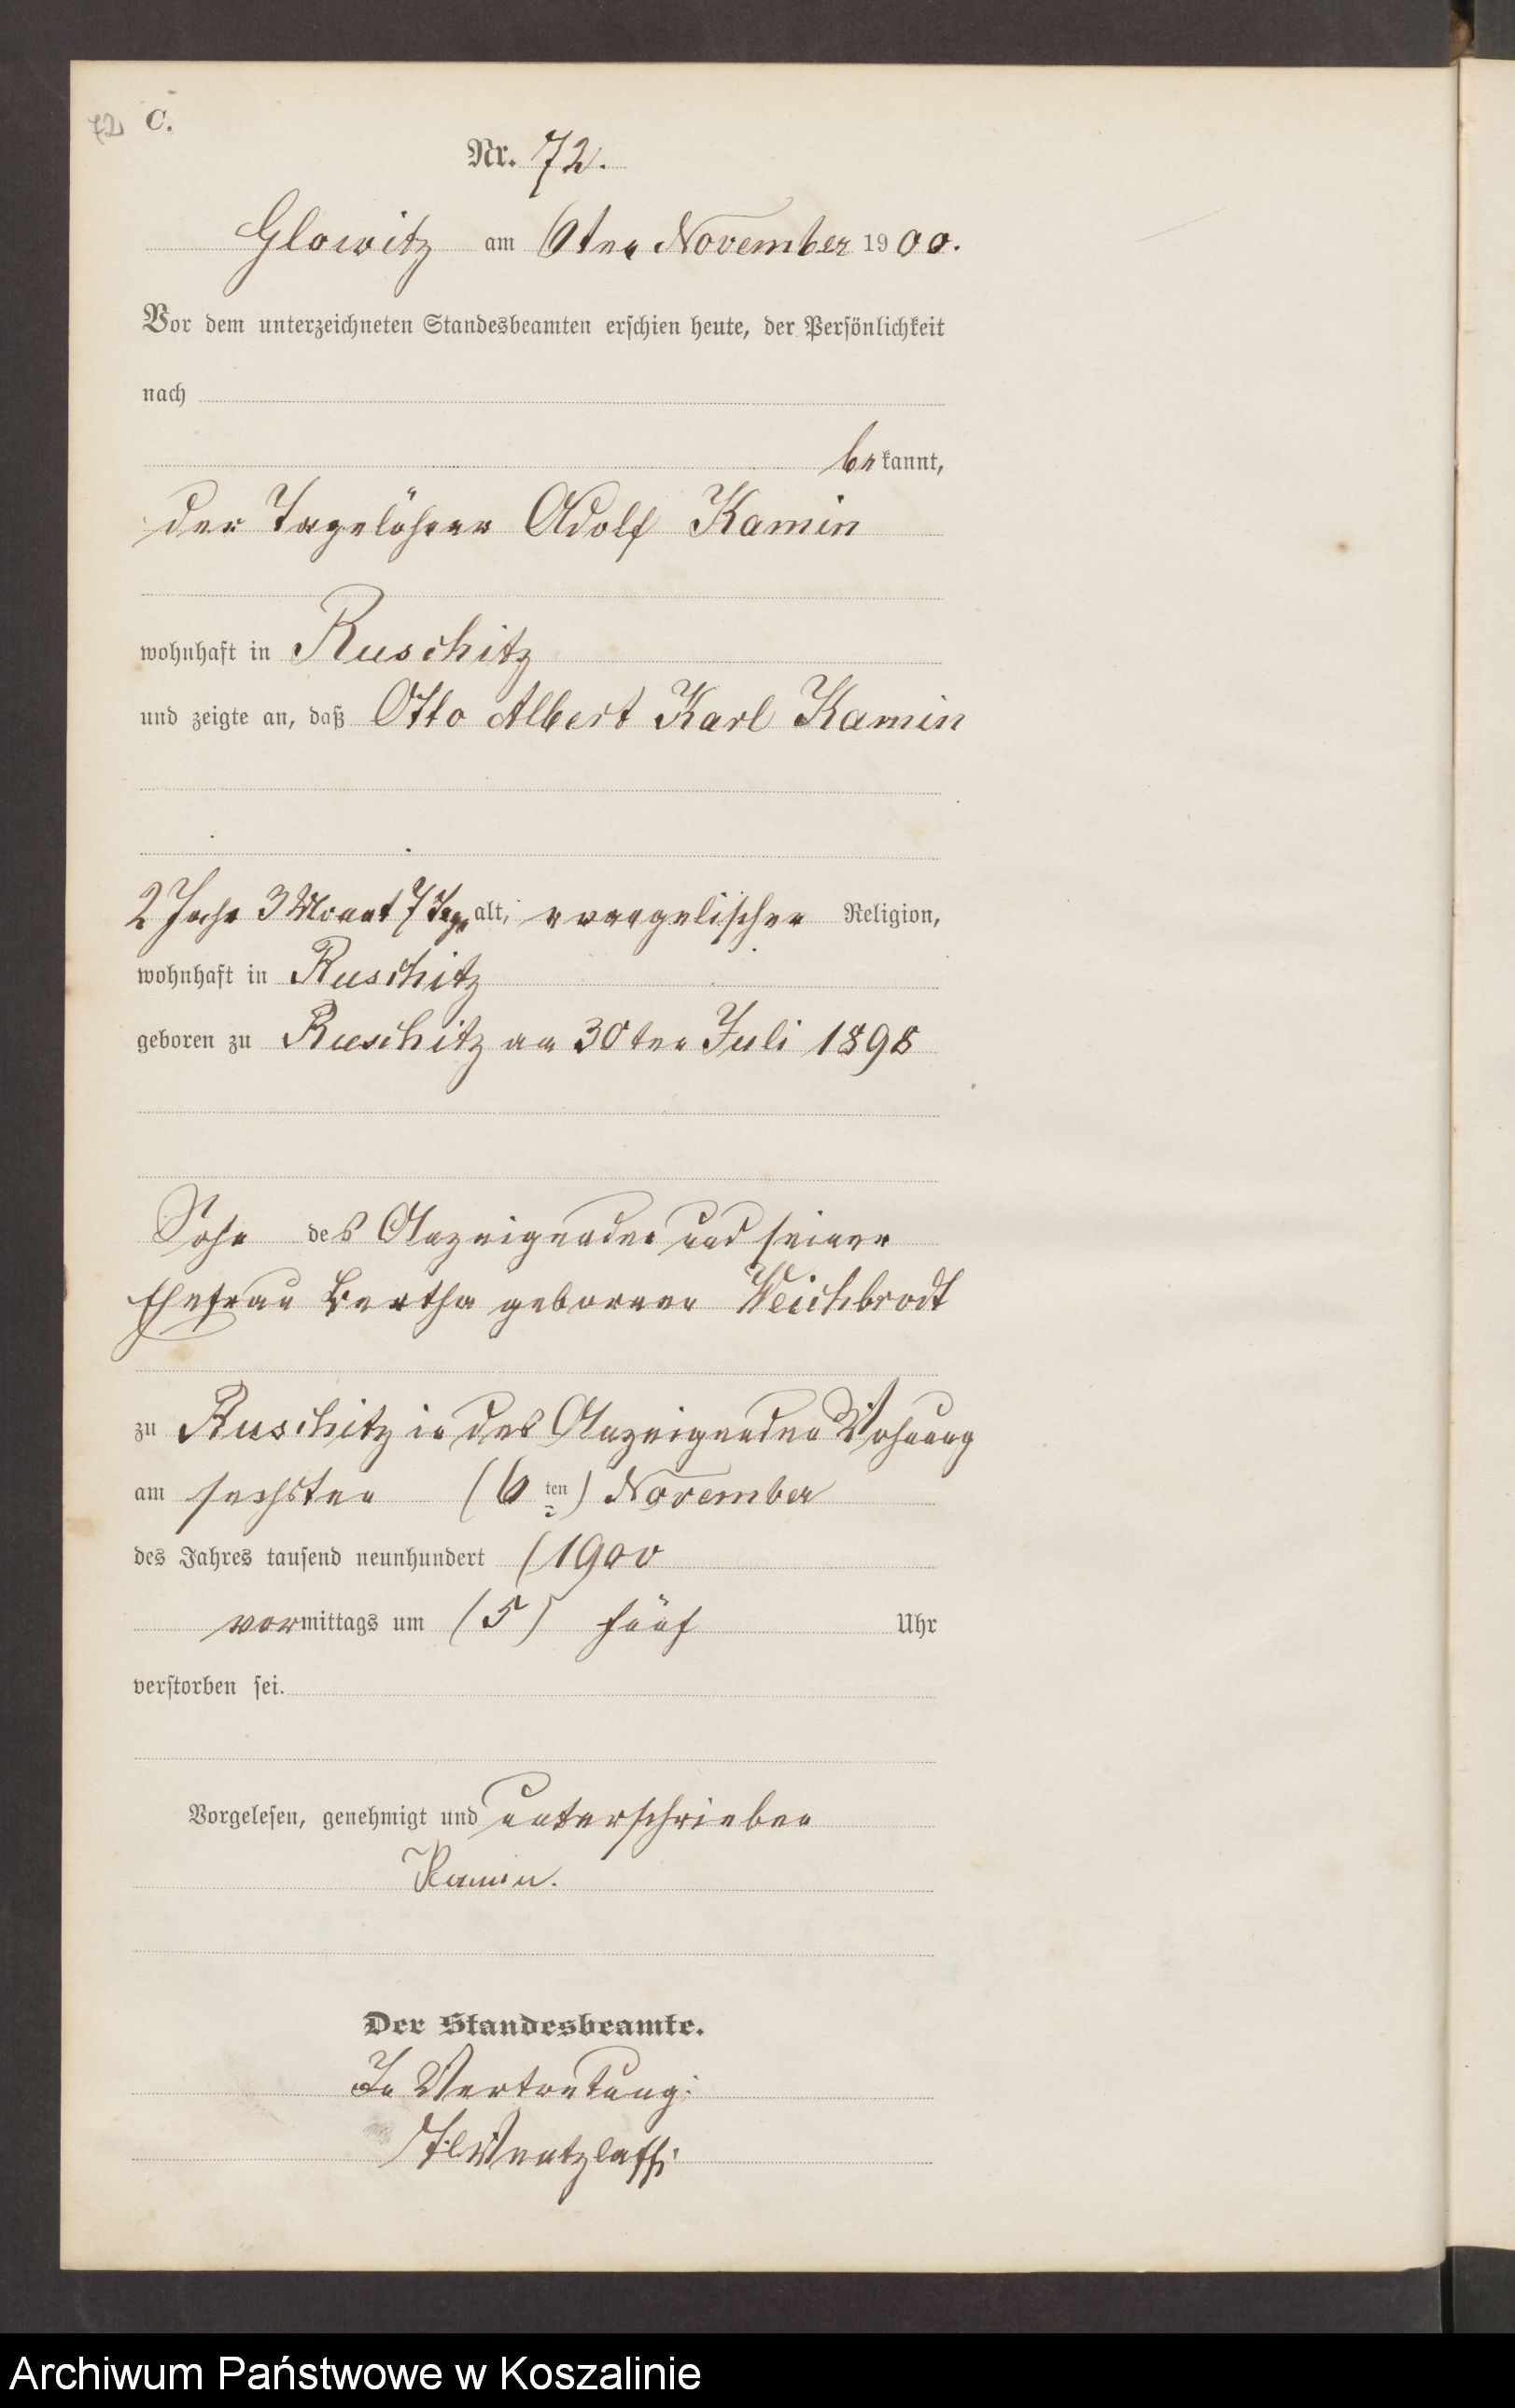 72 C.
Nr. 72.
Glowitz am 6ten November 1900.
Vor dem unterzeichneten Standesbeamten erschien heute, der Persönlichkeit
nach
bekannt,
der Tagelöhner Adolf Kamin
wohnhaft in Ruschitz
und zeigte an, daß Otto Albert Karl Kamin
2 Jahr 3 Monat 7 Tage alt, evangelischer Religion,
wohnhaft in Ruschitz
geboren zu Ruschitz am 30ten Juli 1898
Sohn des Anzeigenden und seiner
Ehefrau Bertha geborenen Weichbrodt
zu Ruschitz in des Anzeigenden Wohnung
am sechsten (6 ten) November
des Jahres tausend neunhundert (1900
vormittags um (5) fünf Uhr
verstorben sei.
Vorgelesen, genehmigt und unterschrieben
Kamin.
Der Standesbeamte.
In Vertretung:
Wentzlaff.
Archiwum Państwowe w Koszalinie